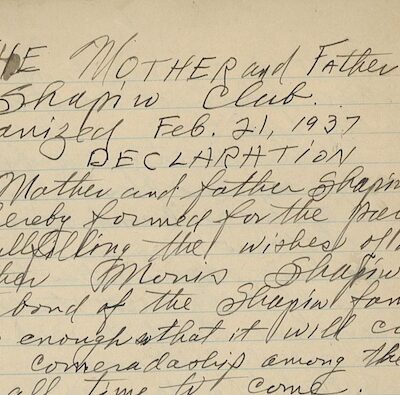 THE MOTHER and Father
Shapiro Club.
anized Feb. 21, 1937
DECLARATION
Mother and father Shapiro
ereby formed for the
ulfilling the wishes of
her Morris Shapiro
bond of the Shapiro fam
enough that it will
comeradaship among the
all time to come.